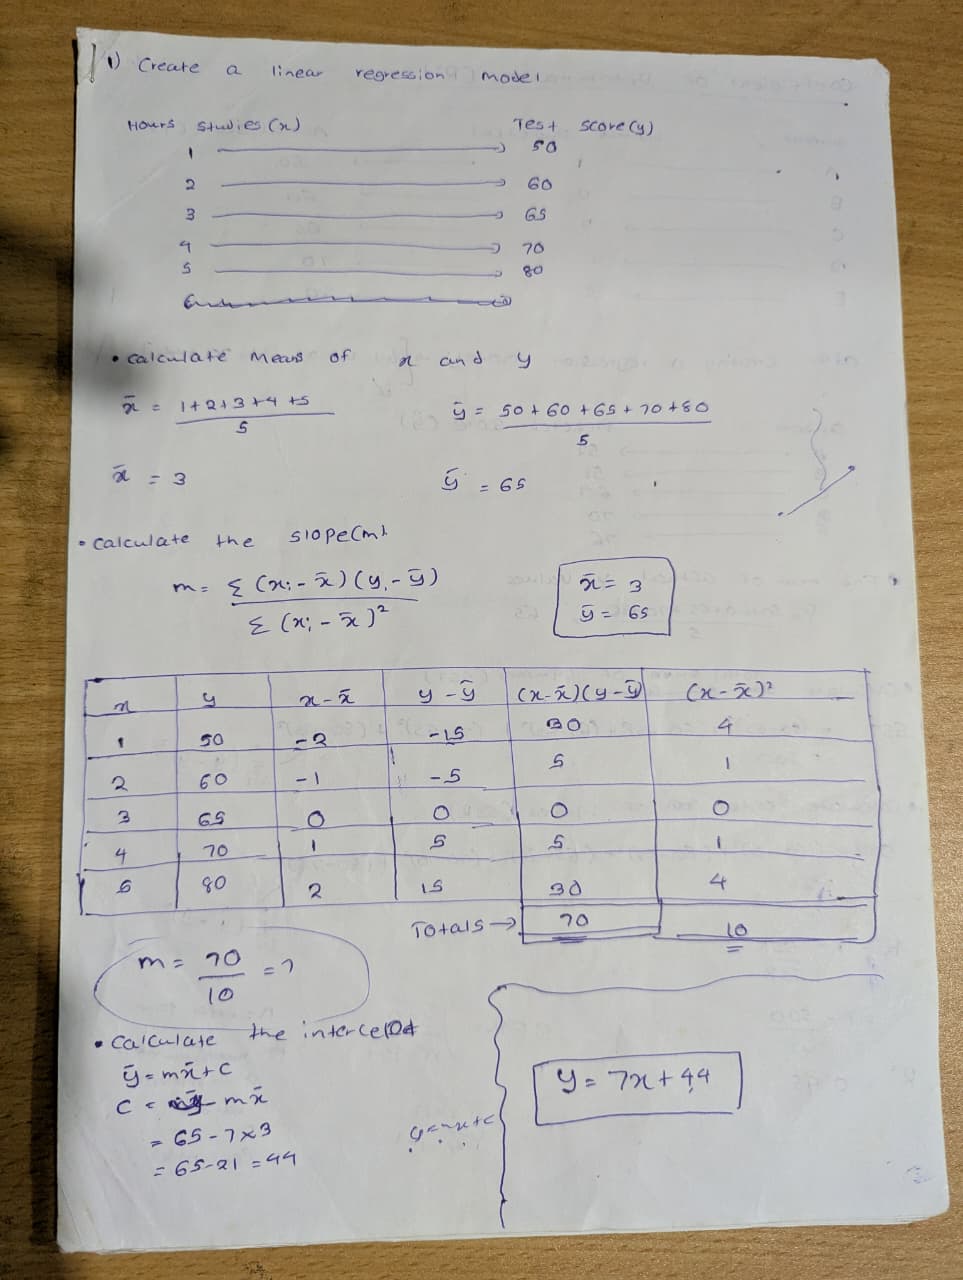 1) Create a linear regression model
Hours studies (x) Test score (y)
1 → 50
2 → 60
3 → 65
4 → 70
5 → 80
• Calculate Means of x and y
x̄ = 1+2+3+4+5 / 5 ȳ = 50+60+65+70+80 / 5
x̄ = 3 ȳ = 65
• Calculate the slope(m)
m = Σ (xᵢ - x̄)(yᵢ - ȳ) / Σ (xᵢ - x̄)²
x̄ = 3
ȳ = 65
x y x-x̄ y-ȳ (x-x̄)(y-ȳ) (x-x̄)²
1 50 -2 -15 30 4
2 60 -1 -5 5 1
3 65 0 0 0 0
4 70 1 5 5 1
5 80 2 15 30 4
Totals → 70 10
m = 70 / 10 = 7
• Calculate the intercept
ȳ = mx̄ + c
c = ȳ - mx̄
= 65 - 7×3
= 65-21 = 44
y = mx + c
y = 7x + 44